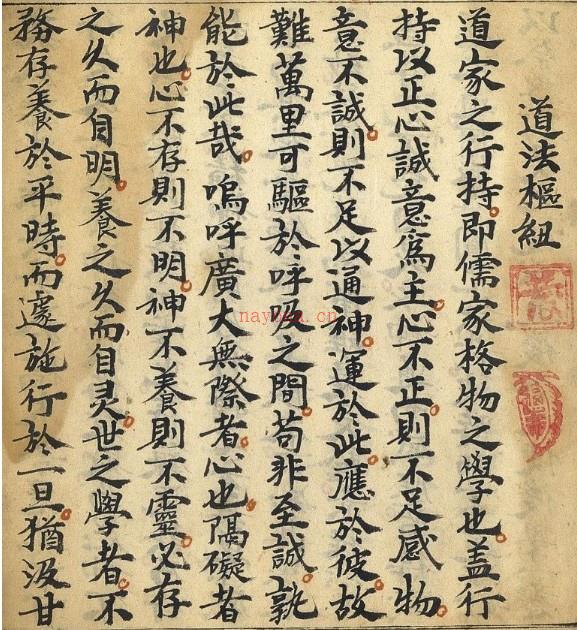 道法樞紐
道家之行持。即儒家格物之學也。盖行
持以正心誠意爲主。心不正。則不足感物。
意不誠。則不足以通神。運於此。應於彼。故
雖萬里可驅於呼吸之間。苟非至誠。孰
能於此哉。嗚呼廣大無際者。心也。隔礙者
神也。心不存則不明。神不養則不靈。必存
之久而自明。養之久而自灵。世之學者。不
務存養於平時。而遽施行於一旦。猶汲甘
nayona.cn